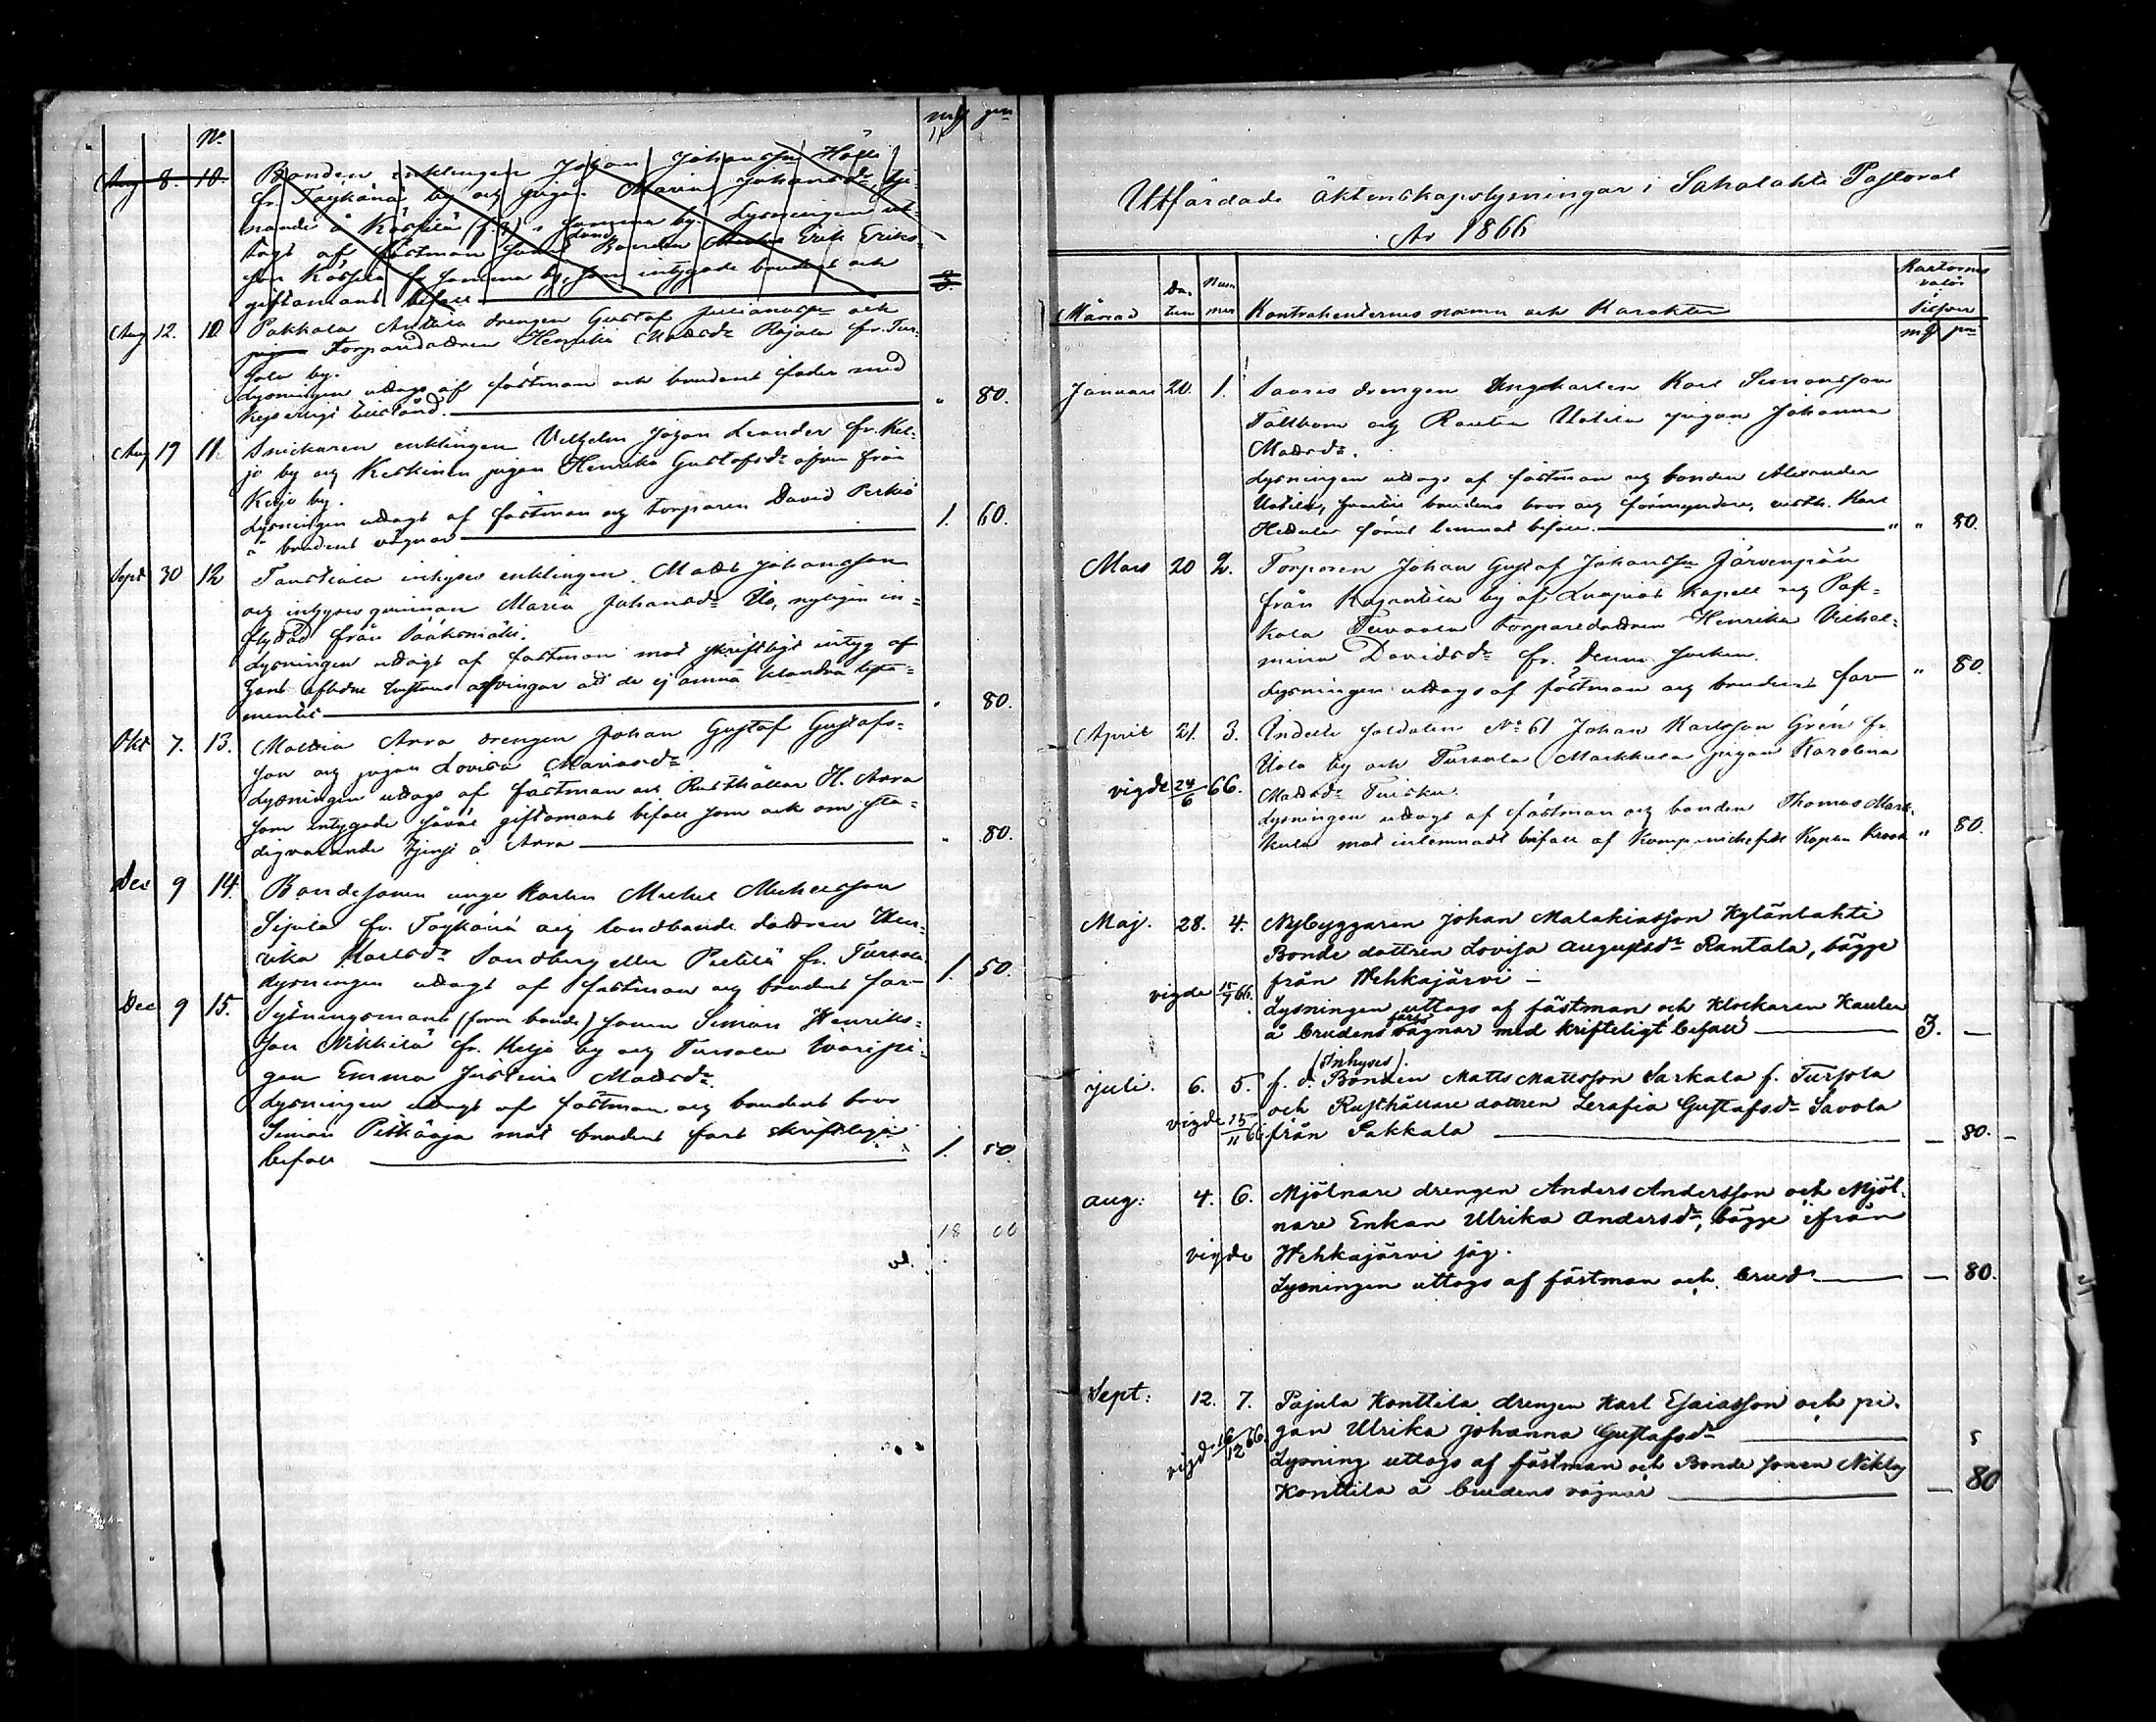 No mg pn
Aug 8. 10. Bonden enklingen Johan Johansson
fr. Töykänä by och pigan Maria Johansdr tje-
nande å Köppilä i samma by. Lysningen ut-
togs af fästman samt Bonden Erik Eriks-
son fr samma by, som intygade brudens och
giftomans bifall 3.
Aug 12. 10. Pakkala Anttila drengen Gustaf Julianasson och
Torparedottren Henrika Mattsdr Rajala fr. Tur-
sola by.
Lysningen uttogs af fästman och brudens fader med
tillstånd. " 80.
Aug 19 11. Snickaren enklingen Vilhelm Johan Leander fr. Kel-
jo by och Keskinen pigan Henrika Gustafsdr äfven från
Keljo by.
Lysningen uttogs af fästman och torparen David Perkiö
å brudens vägnar 1. 60.
Sept 30 12 Taustiala inhyses enklingen Matts Johansson
och inhyses qvinnan Maria Johansdr Uo, nyligen in-
flyttad från Sääksmäki.
Lysningen uttogs af fästman mot skriftligt intyg af
hans aflidne hustrus arfvingar att de ej ämna klandra testa-
mentet " 80.
Okt 7. 13. Mattila Arra drengen Johan Gustaf Gustafs-
son och pigan Lovisa Mariasdr
Lysningen uttogs af fästman och Rusthållar H. Arra
som intygade såväl giftomans bifall som ock om sta-
digvarande hjonje å Arra " 80.
Dec 9 14. Bondesonen unge Karlen Michel Michelsson
Sipola fr. Töykänä och landbonde dottren Hen-
rika Karlsdr Sandberg eller Pietilä fr. Tursola
Lysningen uttogs af fästman och brudens far 1. 50.
Dec 9 15. Sytningsmans (förre bonde) sonen Simon Henriks-
son Nikkilä fr. Keljo by och Tursola Wäri pi-
gan Emma Justina Mattsdr
Lysningen uttogs af fästman och brudens bror
Simon Pitkäoja mot brudens fars skriftliga
bifall 1. 50.
18 00
Utfärdade äktenskapslysningar i Sahalahti Pastorat
År 1866
Månad Da-tum Num-mer Kontrahenternes namn och Karakter Kartornes valör Silfver
mg pn
Januari 20. 1. Saaris drengen Ungkarlen Karl Simonsson
Tallbom och Rautu Uotila pigan Johanna
Mattsdr.
Lysningen uttogs af fästman och bonden Alexander
Uotila, brudens bror och förmyndare, Karl
Hedulin förut lemnat bifall. " " 80.
Mars 20 2. Torparen Johan Gustaf Johansson Järvenpään
från Rajantila by af Luopiois Kapell och Pak-
kala Teivaala torparedottren Henrika Vilhel-
mina Davidsdr fr. denna socken.
Lysningen uttogs af fästman och brudens far " 80.
April 21. 3. Indelte soldaten No 61 Johan Karlsson Grén fr.
Uola by och Tursola Markkula pigan Karolina
vigde 24/6 66. Mattsdr Tuisku.
Lysningen uttogs af fästman och bonden Thomas Mark-
kula mot inlemnadt bifall af Kompanichefen Kapten Krook " 80.
Maj. 28. 4. Nybyggaren Johan Malakiasson Kylänlahti
Bonde dottren Lovisa Augustsdr Rantala, bägge
från Wehkajärvi —
vigde 15/7 66. Lysningen uttogs af fästman och Klockaren Kaulen
å brudens fars vägnar med skrifteligt bifall 3. —
(Inhyses).
Juli. 6. 5. f. d. Bonden Matts Mattsson Sarkala f. Tursola
och Rusthållare dottren Serafia Gustafsdr Savola
vigde 25/11 66 från Pakkala — 80. —
Aug: 4. 6. Mjölnare drengen Anders Andersson och Mjöl-
nare Enkan Ulrika Andersdr, bägge ifrån
vigde Wehkajärvi såg.
Lysningen uttogs af fästman och brud — 80.
Sept: 12. 7. Pajula Konttila drengen Karl Esaiasson och pi-
gan Ulrika Johanna Gustafsdr
vigd 16/12 66 Lysning uttogs af fästman och Bonde sonen Niklas
Konttila å brudens vägnar — 80